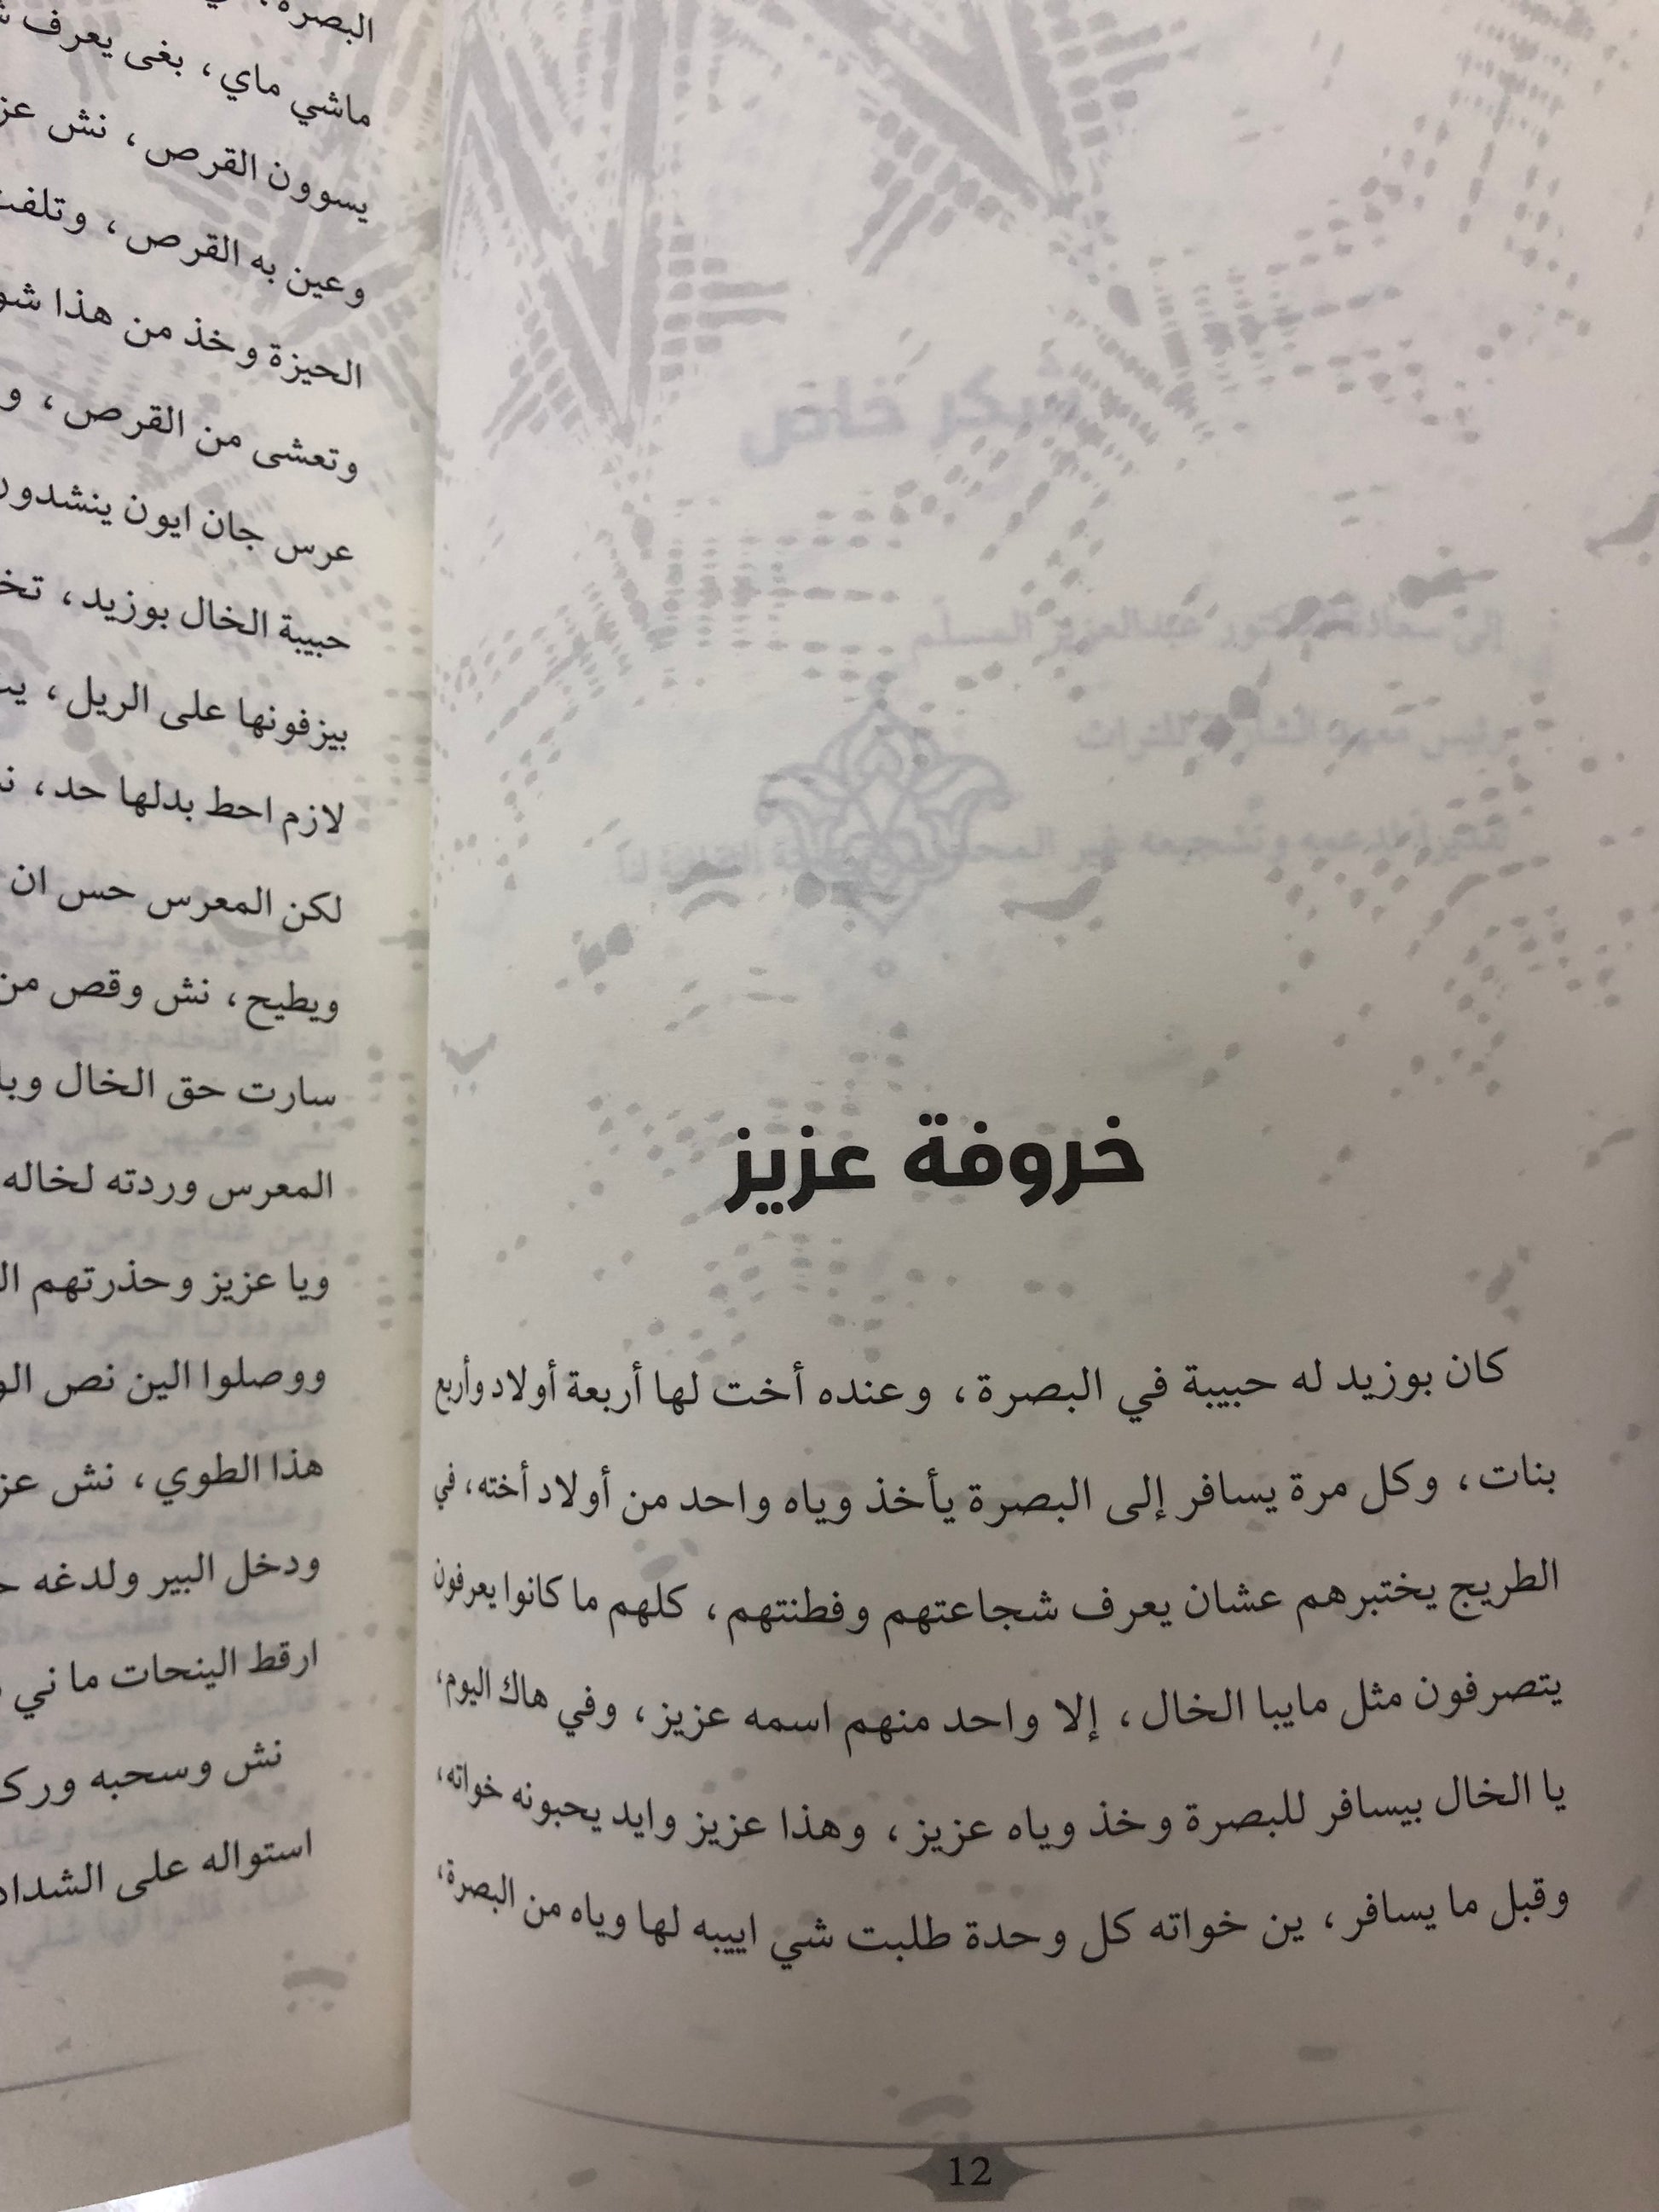 خروفة عزيز
كان بوزيد له حبيبة في البصرة، وعنده أخت لها أربعة أولاد وأربع
بنات، وكل مرة يسافر إلى البصرة يأخذ وياه واحد من أولاد أخته، في
الطريج يختبرهم عشان يعرف شجاعتهم وفطنتهم، كلهم ما كانوا يعرفون
يتصرفون مثل مايبا الخال، إلا واحد منهم اسمه عزيز، وفي هاك اليوم،
يا الخال بيسافر للبصرة وخذ وياه عزيز، وهذا عزيز وايد يحبونه خواته،
وقبل ما يسافر، ين خواته كل وحدة طلبت شي اييبه لها وياه من البصرة،
12
البصرة
ماشي ماي، بغى يعرف
يسوون القرص، نش
وعين به القرص،
الحيزة وخذ من هذا
وتعشى من القرص، و
عرس جان ايون ينشدون
حبيبة الخال بوزيد،
بيزفونها على الريل،
لازم احط بدلها حد،
لكن المعرس حس ان
ويطيح، نش وقص من
سارت حق الخال
المعرس وردته لخاله
ويا عزيز وحذرتهم
ووصلوا الين نص
هذا الطوي، نش
ودخل البير ولدغه
ارقط الينحات ما ني
نش وسحبه
استواله على الشداد